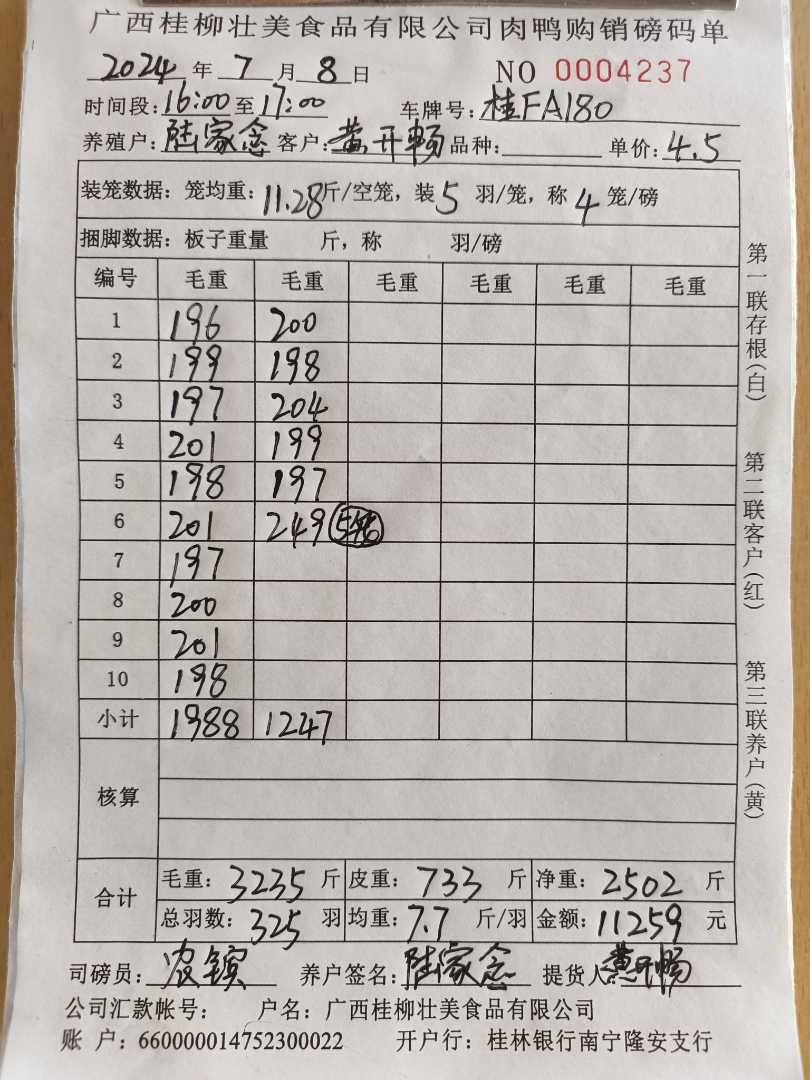 广西桂柳壮美食品有限公司肉鸭购销磅码单
2024 年 7 月 8 日 NO 0004237
时间段: 16:00 至 17:00 车牌号: 桂FA180
养殖户: 陆家念 客户: 黄开畅 品种: 单价: 4.5
装笼数据: 笼均重: 11.28 斤/空笼, 装 5 羽/笼, 称 4 笼/磅
捆脚数据: 板子重量 斤, 称 羽/磅
编号 毛重 毛重 毛重 毛重 毛重 毛重
1 196 200
2 199 198
3 197 204
4 201 199
5 198 197
6 201 249
7 197
8 200
9 201
10 198
小计 1988 1247
核算
合计 毛重: 3235 斤 皮重: 733 斤 净重: 2502 斤
总羽数: 325 羽 均重: 7.7 斤/羽 金额: 11259 元
司磅员: 农镔 养户签名: 陆家念 提货人 黄开畅
公司汇款帐号: 户名: 广西桂柳壮美食品有限公司
账 户: 660000014752300022 开户行: 桂林银行南宁隆安支行
第一联存根(白)
第二联客户(红)
第三联养户(黄)